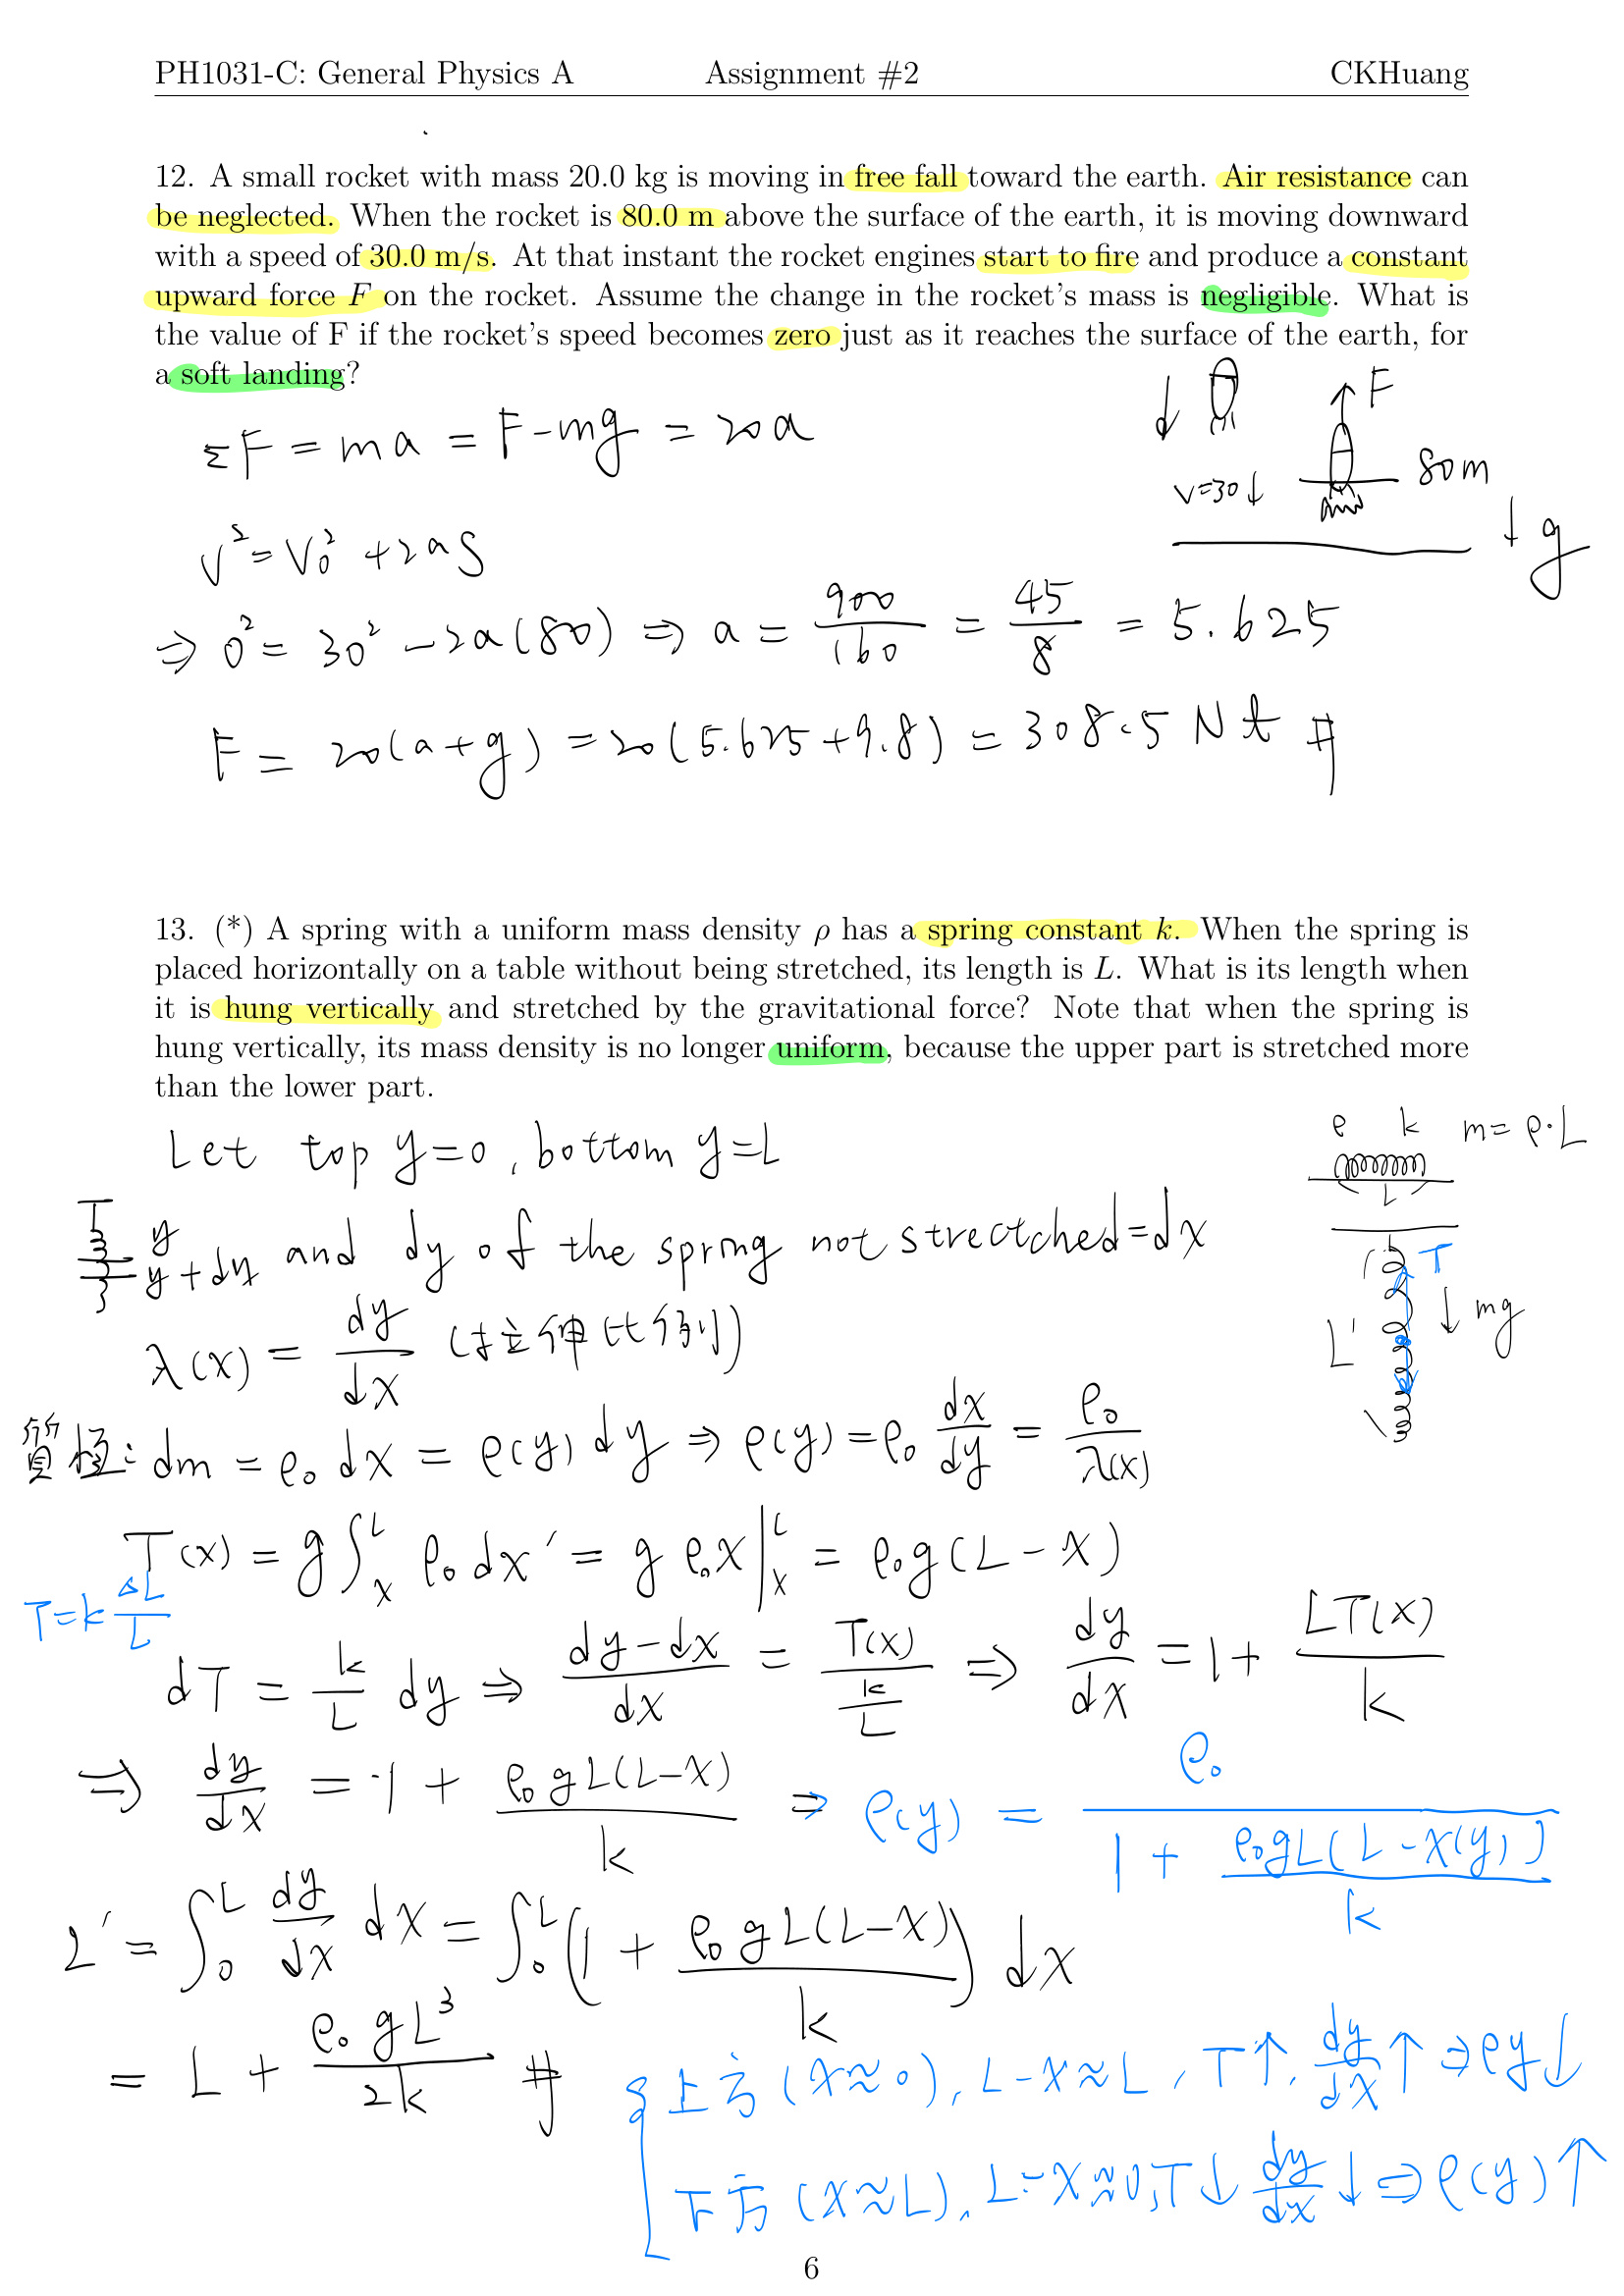 PH1031-C: General Physics A Assignment #2 CKHuang
12. A small rocket with mass 20.0 kg is moving in free fall toward the earth. Air resistance can
be neglected. When the rocket is 80.0 m above the surface of the earth, it is moving downward
with a speed of 30.0 m/s. At that instant the rocket engines start to fire and produce a constant
upward force F on the rocket. Assume the change in the rocket's mass is negligible. What is
the value of F if the rocket's speed becomes zero just as it reaches the surface of the earth, for
a soft landing?
ΣF = ma = F-mg = 20a
F
v=30↓
80m
↓g
v² = v₀² + 2aS
⇒ 0² = 30² - 2a(80) ⇒ a = 900/160 = 45/8 = 5.625
F = 20(a+g) = 20(5.625+9.8) = 308.5 Nt #
13. (*) A spring with a uniform mass density ρ has a spring constant k. When the spring is
placed horizontally on a table without being stretched, its length is L. What is its length when
it is hung vertically and stretched by the gravitational force? Note that when the spring is
hung vertically, its mass density is no longer uniform, because the upper part is stretched more
than the lower part.
Let top y=0, bottom y=L
ρ k m=ρ·L
L
y
y+dy and dy of the spring not strectched=dx
T
L' ↓mg
λ(x) = dy/dx (拉伸比例)
質極: dm = ρ₀dx = ρ(y)dy ⇒ ρ(y) = ρ₀ dx/dy = ρ₀/λ(x)
T(x) = g∫ₓᴸ ρ₀dx' = gρ₀x|ₓᴸ = ρ₀g(L-x)
T=k ΔL/L
dT = k/L dy ⇒ (dy-dx)/dx = T(x)/(k/L) ⇒ dy/dx = 1+ LT(x)/k
⇒ dy/dx = 1 + ρ₀gL(L-x)/k ⇒ ρ(y) = ρ₀/(1 + ρ₀gL(L-x(y))/k)
L' = ∫₀ᴸ dy/dx dx = ∫₀ᴸ (1 + ρ₀gL(L-x)/k) dx
= L + ρ₀gL³/2k #
上方 (x≈0), L-x≈L, T↑, dy/dx↑ ⇒ρy↓
下方 (x≈L), L-x≈0, T↓ dy/dx↓ ⇒ρ(y)↑
6